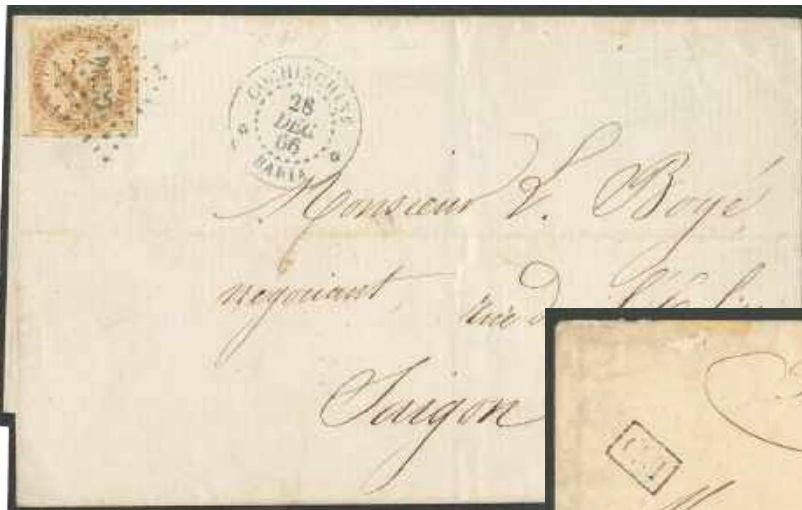 COCHINCHINE
28
DEC.
66
BARIA
Monsieur L. Boyé
négociant rue
Saigon